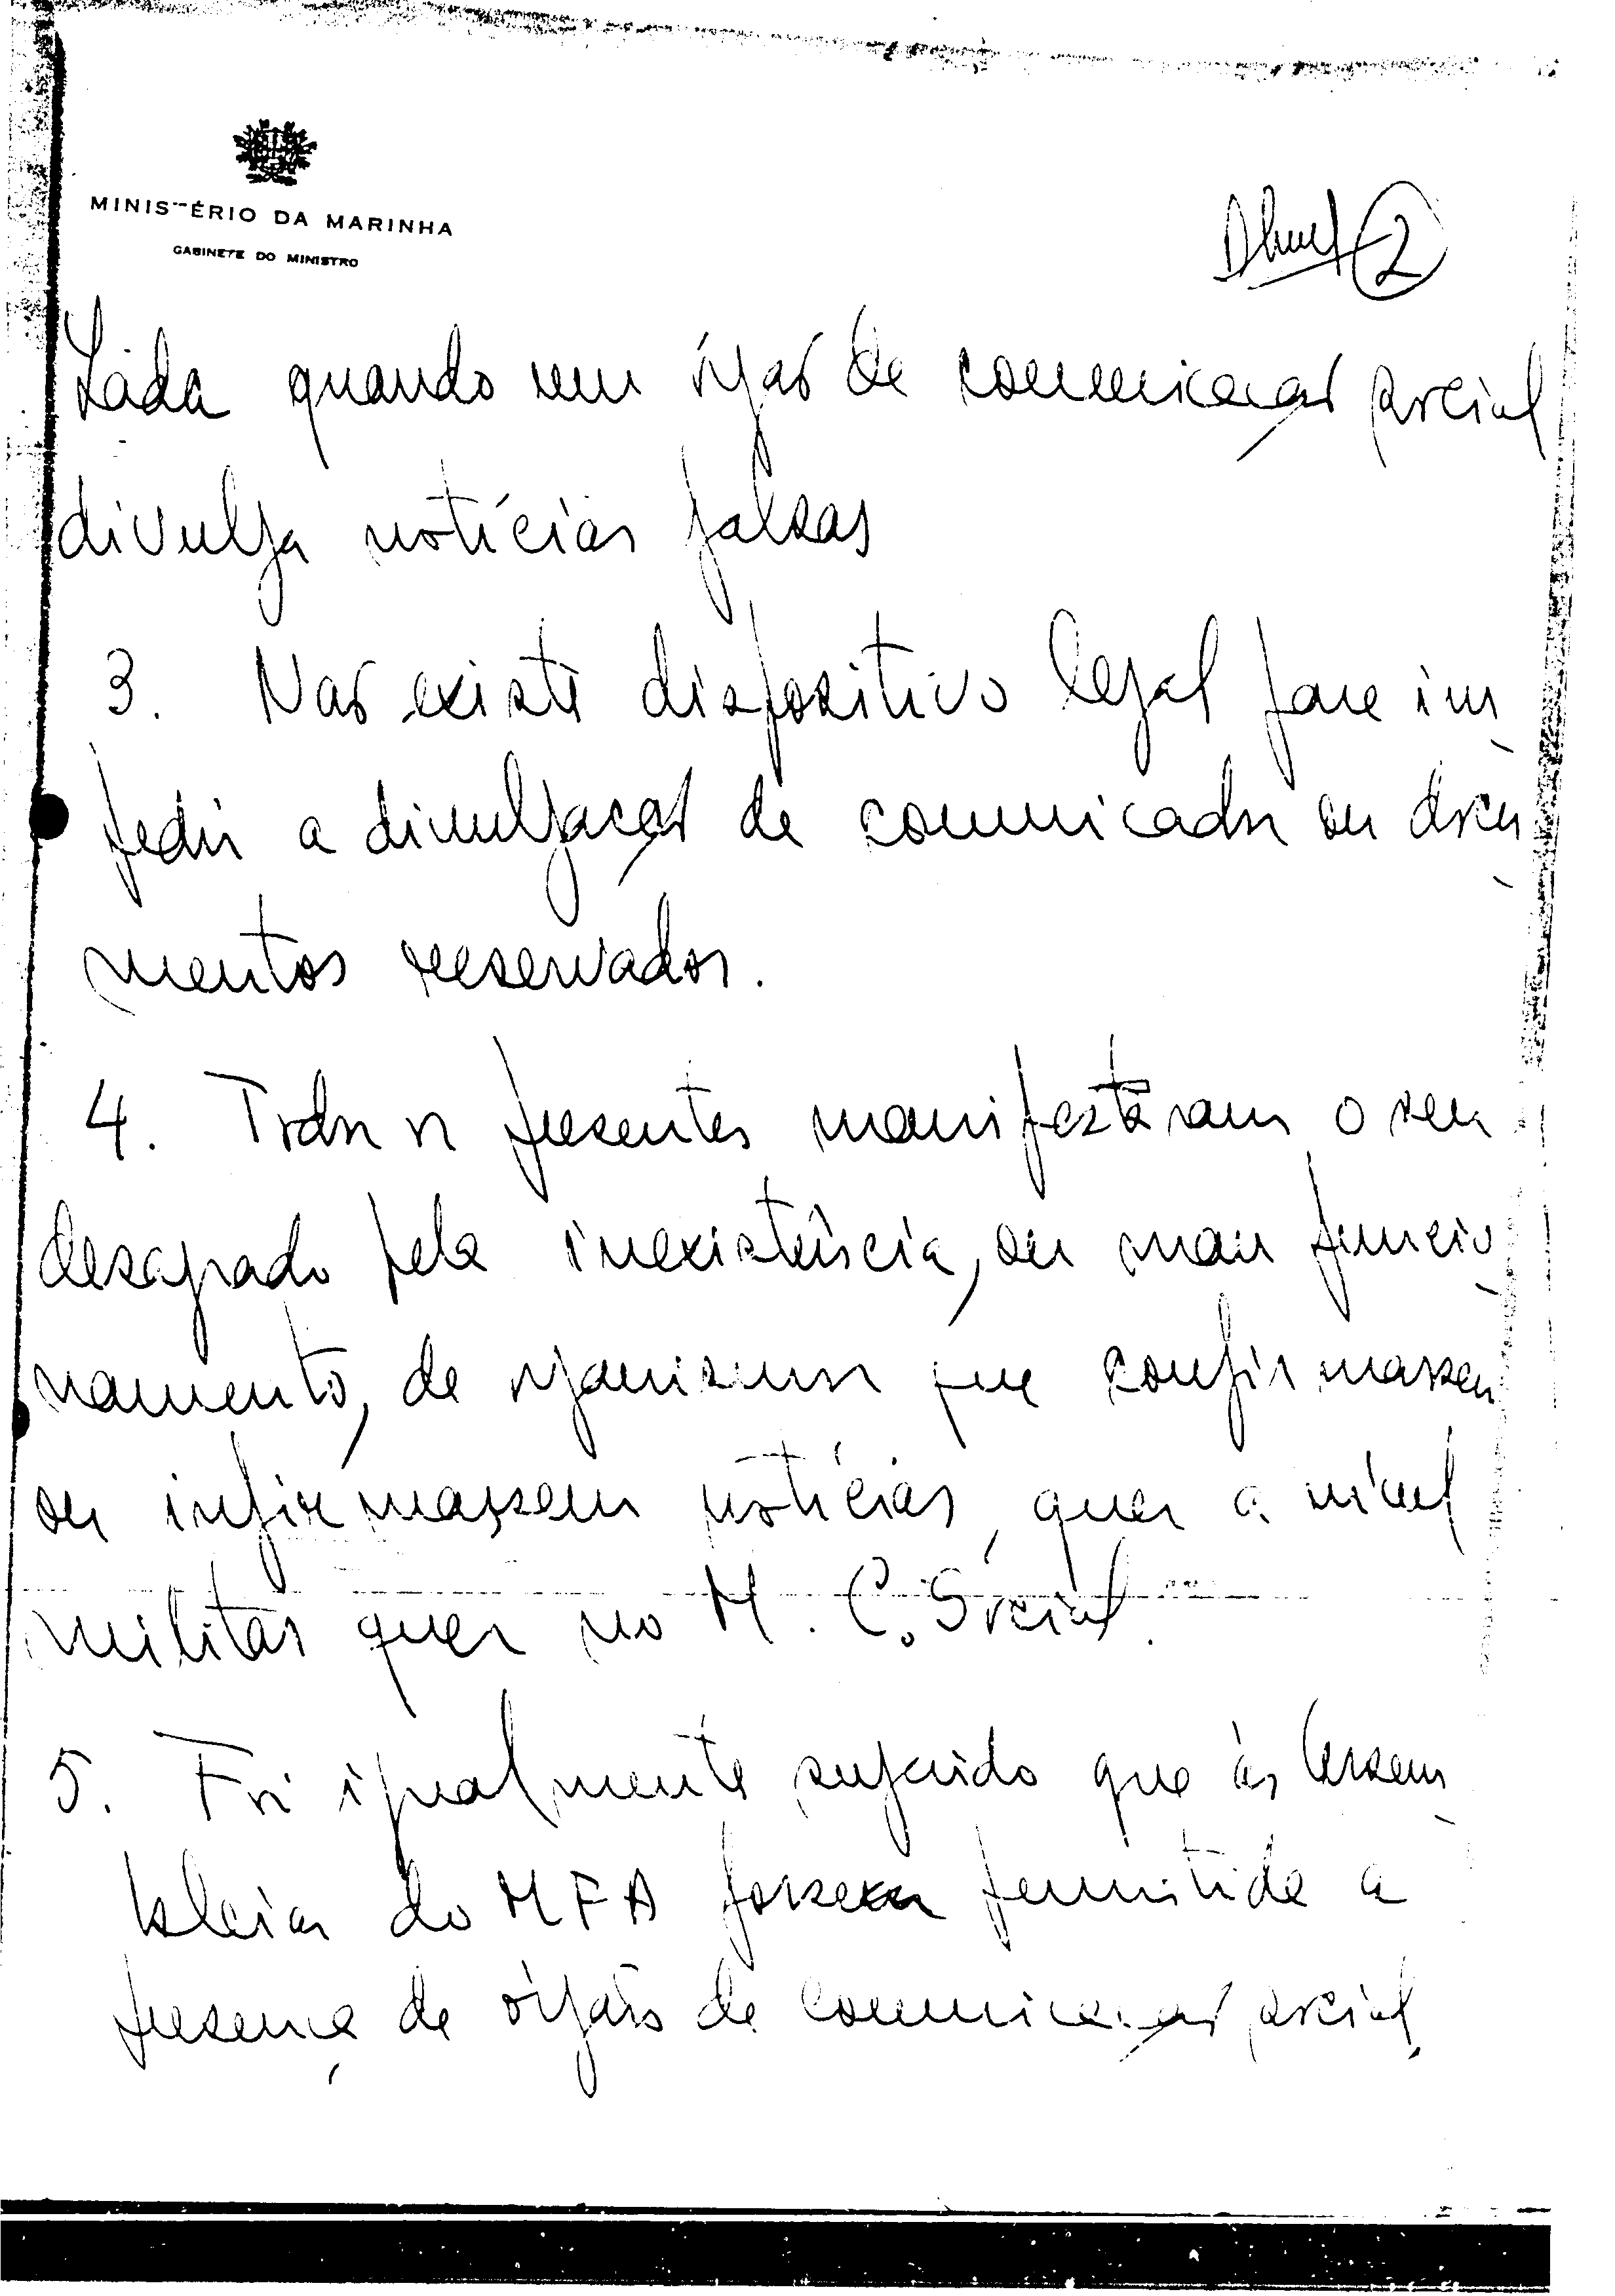 MINISTÉRIO DA MARINHA
GABINETE DO MINISTRO
2
tada quando um órgão de comunicação social
divulga notícias falsas
3. Não existe dispositivo legal para im
pedir a divulgação de comunicados ou docu
mentos reservados.
4. Todos os presentes manifestaram o seu
desagrado pela inexistência, ou mau funcio
namento, de organismos que confirmassem
ou infirmassem notícias, quer a nível
militar quer no M. C. Social.
5. Foi igualmente sugerido que às Assem
bleias do MFA fossem permitida a
presença de órgãos de comunicação social,